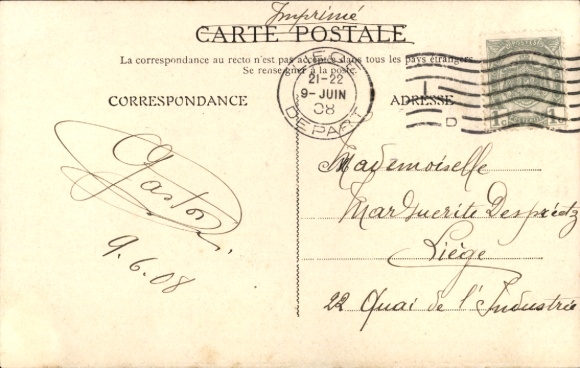 Imprimé
CARTE POSTALE
La correspondance au recto n'est pas acceptée dans tous les pays étrangers.
Se renseigner à la poste.
LIEGE
21-22
9-JUIN
08
DEPART
CORRESPONDANCE
ADRESSE
L
D
1c 1c
Gaston
9.6.08
Mademoiselle
Marguerite
Liège
22 Quai de l'Industrie